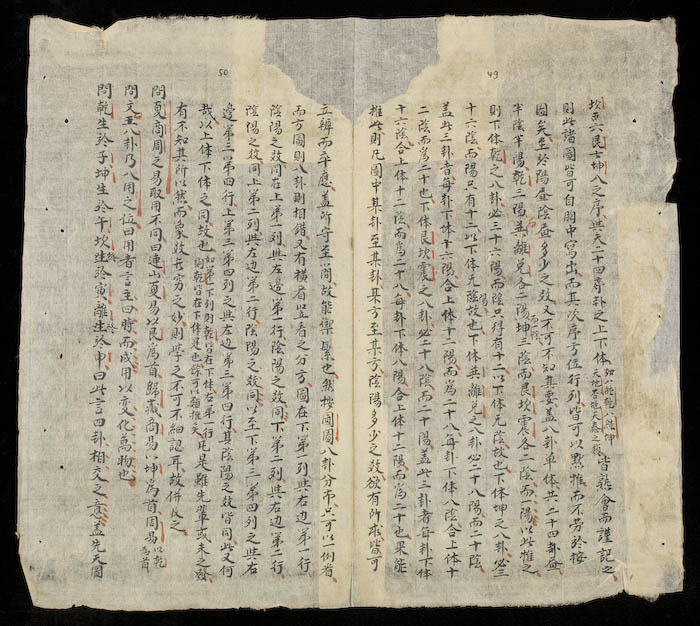 49
坎六艮七坤八之序與夫二十四尋卦之上下体如八純乾八純坤天地否地天泰之類皆熟會而謹記之
則此諸圖皆可自胸中寫出而其次序方位行列皆可以默推而不劳於按
圖矣至於陽卦陰卦多少之数又不可不知其要盖八卦单体共二十四卦
半陰半陽乾三陽兌離巽各二陽坤三陰而艮坎震各二陰而一陽以此推之
則下体乾之八卦必三十六陽而陰只得有十二以下体无陰故也下体坤之八卦必三
十六陰而陽只有十二以下体无陽故也下体巽離兌之八卦必二十八陽而二十陰
盖此三卦者每卦下体十六陽合上体十二陽而為二十八每卦下体八陰合上体十
二陰而為二十也下体艮坎震之八卦必二十八陰而二十陽盖此三卦者每卦下体
十六陰合上体十二陰而為二十八每卦下体八陽合上体十二陽而為二十也果能
推此則凡圖中某卦至某卦某方至某方陰陽多少之数欲有所求皆可
50
立辨而卒應盖所守至簡故能禦繁也然按圓圖八卦分布只可以一例看
而方圖則八卦則相錯又有橫看竖看之分方圖在下第一列與右边第一行
陰陽之数同在上第一列與左邊第一行陰陽之数同下第二列與右边第二行
陰陽之数同上第二列與左边第二行陰陽之数同以至下第三第四列之與右
邊第三第四行上第三第四列之與左邊第三第四行其陰陽之数皆同此又何
哉以上体下体之同故也如第一下列則乾皆在下体右第一行則乾皆在下体是也餘可以類推矣凡是雖先輩或未之發
有不知其所以然而象数无窮之妙則学之不可不細認耳故併及之
問夏商周之易取用不同曰連山夏易以艮為首歸藏商易以坤為首周易以乾為首
問文王八卦乃入用之位曰用者言主四時而成用以變化萬物也
問乾生於子坤生於午坎終於寅離終於申曰此言四卦相交之意盖先天圖